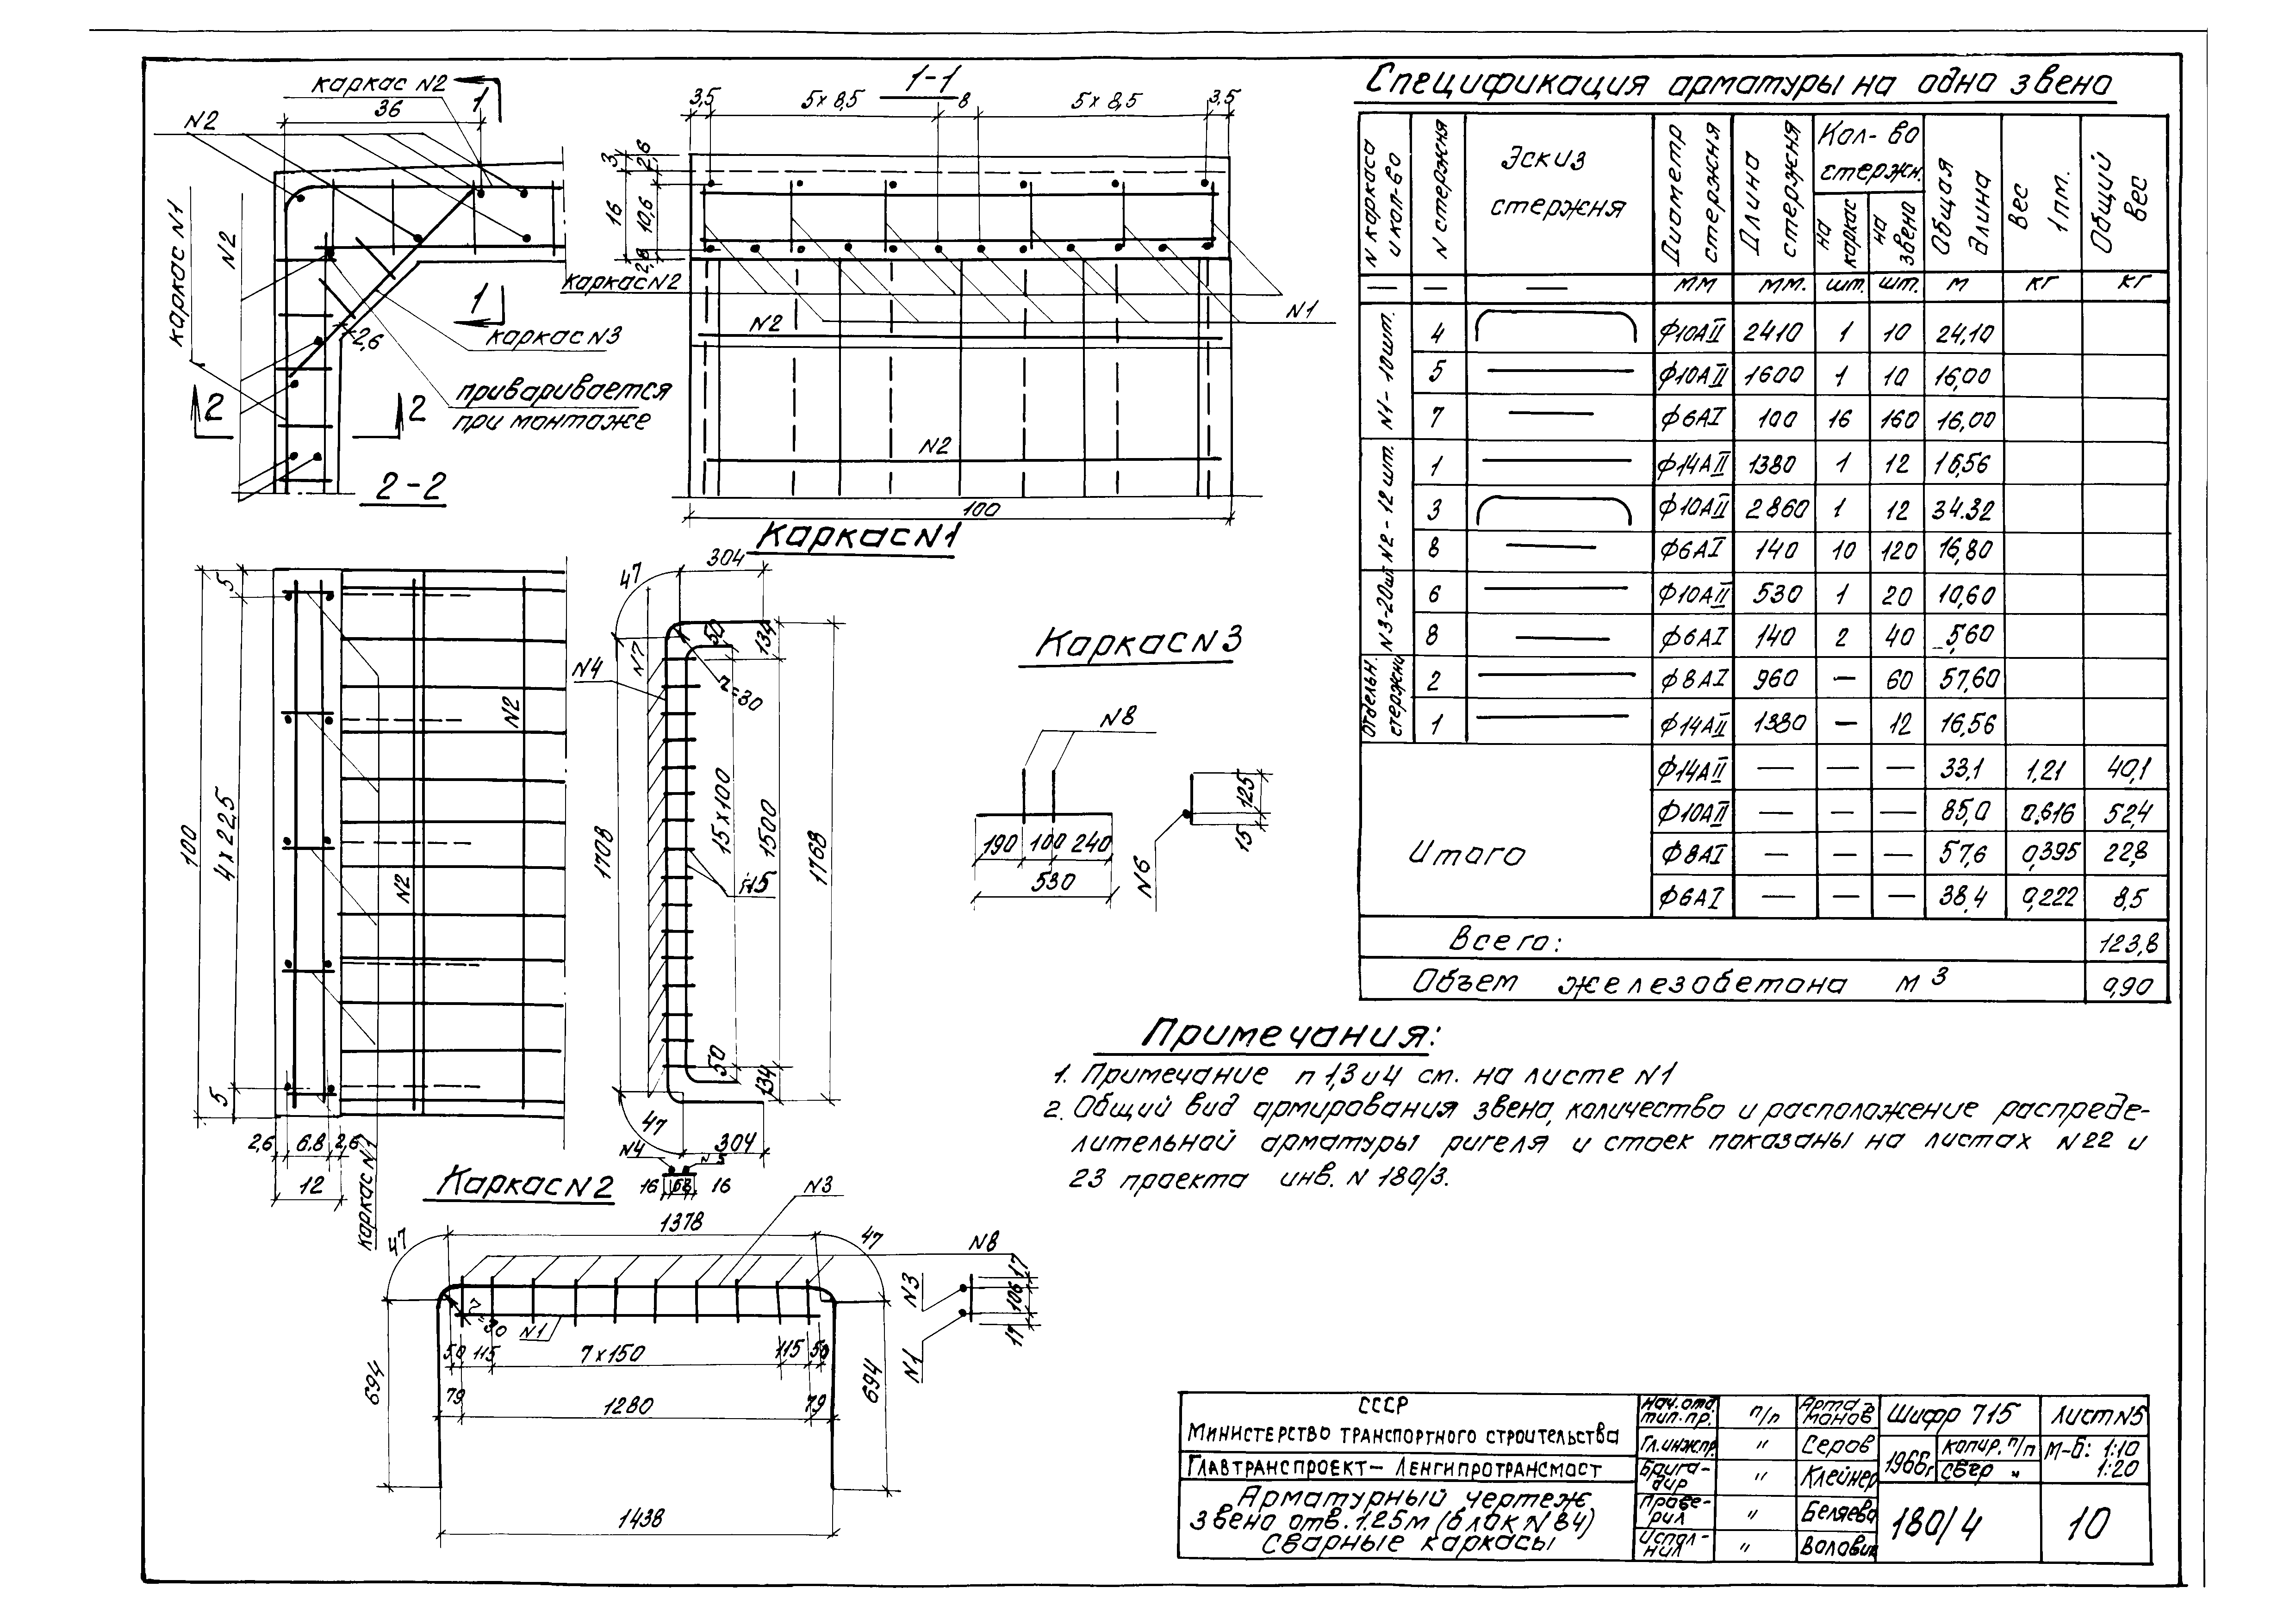 каркас N2
36
1
N2
каркас N1
N2
2,6
каркас N3
1
приваривается
при монтаже
2
2
1-1
3,5
5×8,5
8
5×8,5
3,5
3
2,6
16
10,6
2,8
каркас N2
N1
N2
N2
100
2-2
5
100
4×22,5
5
N2
N2
2,6
6.8
2,6
12
каркас N1
Каркас N1
304
47
N7
N4
50
134
r=30
1708
15×100
1500
1768
N5
50
134
47
304
N4
16
68
16
Каркас N3
N8
190
100
240
530
125
15
N6
Каркас N2
N3
1378
47
47
N8
r=30
N1
50
115
7×150
115
50
694
694
79
1280
79
1438
N3
N1
17
106
17
Спецификация арматуры на одно звено
N каркаса и кол-во
N стержня
Эскиз стержня
Диаметр стержня
Длина стержня
Кол-во стержн.
на каркас
на звено
Общая длина
Вес 1пм.
Общий вес
— — — мм мм. шт. шт. м кг кг
N1-10шт.
4 Ф10АII 2410 1 10 24,10
5 Ф10АII 1600 1 10 16,00
7 Ф6АI 100 16 160 16,00
N2-12 шт.
1 Ф14АII 1380 1 12 16,56
3 Ф10АII 2860 1 12 34.32
8 Ф6АI 140 10 120 16,80
N3-20шт
6 Ф10АII 530 1 20 10,60
8 Ф6АI 140 2 40 5,60
Отдельн. стержни
2 Ф8АI 960 — 60 57,60
1 Ф14АII 1380 — 12 16,56
Итого
Ф14АII — — — 33,1 1,21 40,1
Ф10АII — — — 85,0 0,616 52,4
Ф8АI — — — 57,6 0,395 22,8
Ф6АI — — — 38,4 0,222 8,5
Всего: 123,8
Объем железобетона м3 0,90
Примечания:
1. Примечание п 1,3 и 4 см. на листе N1
2. Общий вид армирования звена, количество и расположение распреде-
лительной арматуры ригеля и стоек показаны на листах N22 и
23 проекта инв. N 180/3.
СССР
Министерство транспортного строительства
Главтранспроект- Ленгипротрансмост
Арматурный чертеж
звена отв. 1.25м (блок N 84)
Сварные каркасы
Нач.отд. тип.пр. п/п Артамонов
Гл.инж.пр. " Серов
Бригадир " Клейнер
Проверил " Беляева
Исполнил " Воловик
Шифр 715
Лист N5
1966г
копир. п/п
свер "
М-б: 1:10
1:20
180/4
10